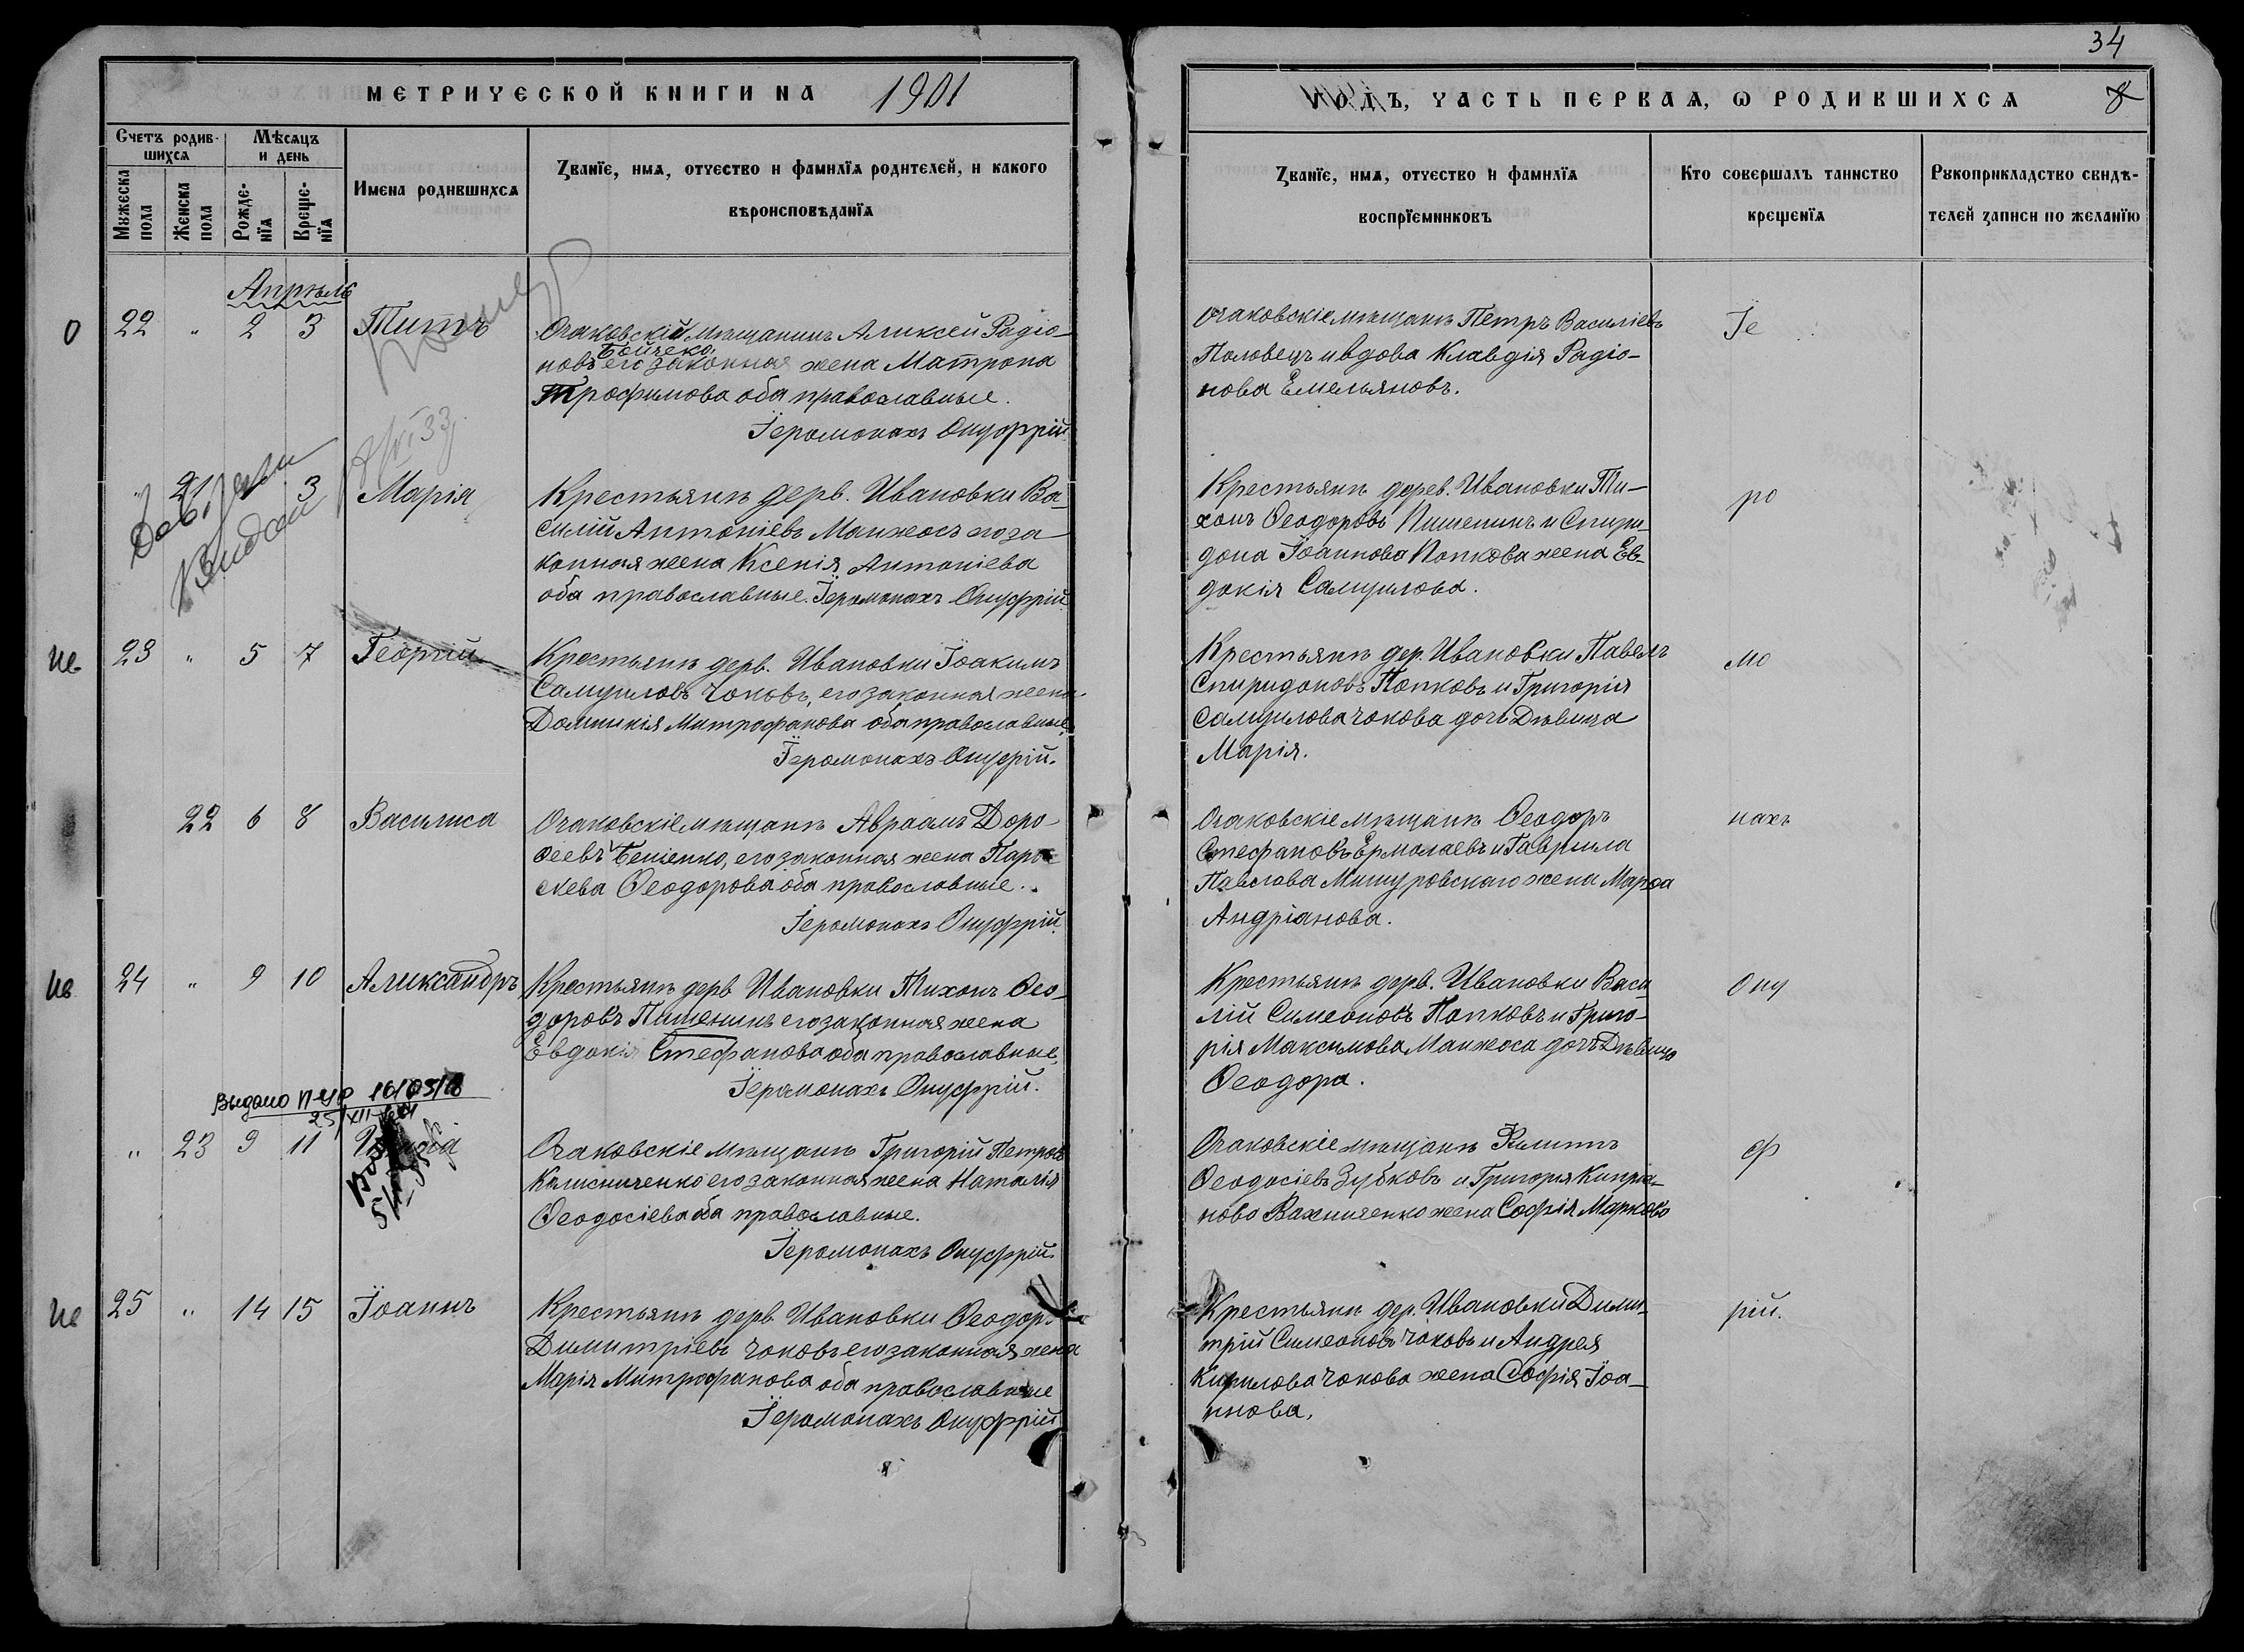 34
МЕТРИЧЕСКОЙ КНИГИ НА 1901
ГОДЪ, ЧАСТЬ ПЕРВАЯ, Ѡ РОДИВШИХСЯ
8
Счетъ родив-
шихся
Мѣсяцъ
и день
Мужеска
пола
Женска
пола
Рожде-
нїя
Креще-
нїя
Имена родившихся
Званїе, имя, отчество и фамилїя родителей, и какого
вѣроисповѣданїя
Званїе, имя, отчество и фамилїя
воспрїемниковъ
Кто совершалъ таинство
крещенїя
Рукоприкладство свидѣ-
телей записи по желанїю
Апрѣль
О
22 " 2 3 Титъ
Очаковскій мѣщанинъ Аликсей Радіо-
Бойчеко,
новъ его законная жена Матрона
Трофимова оба православные.
Іеромонахъ Онуфрій
Очаковскіе мѣщанъ Петръ Василіевъ
Половецъ и вдова Клавдія Радіо-
нова Емельяновъ.
Іе
" 21 3 Марія
Крестьянъ дерв. Ивановки Ва-
силій Антоніевъ Манжосъ его за
конная жена Ксенія Антоніева
оба православные. Іеромонахъ Онуфрій
Крестьянъ дерев. Ивановки Ти-
хонъ Ѳеодоровъ Пишенинъ и Спири-
дона Іоаннова Попкова жена Ев-
докія Самуилова.
ро
не
23 " 5 7 Георгій
Крестьянъ дерв. Ивановки Іоакимъ
Самуиловъ Чоковъ, его законная жена
Домникія Митрофанова оба православные
Іеромонахъ Онуфрій.
Крестьянъ дер. Ивановки Павелъ
Спиридоновъ Попковъ и Григорія
Самуилова Чокова дочь Дѣвица
Марія.
мо
22 6 8 Василиса
Очаковскіе мѣщанъ Авраамъ Доро-
ѳеевъ Бешенко, его законная жена Пара
скева Ѳеодорова оба православные.
Іеромонахъ Онуфрій.
Очаковскіе мѣщанъ Ѳеодоръ
Стефановъ Ермолаевъ и Гавриила
Павлова Мишуровскаго жена Марѳа
Андріанова.
нахъ
не
24 " 9 10 Аликсандръ
Крестьянъ дерв Ивановки Тихонъ Ѳео-
доровъ Пишенинъ его законная жена
Евдокія Стефанова оба православные,
Іеромонахъ Онуфрій.
Крестьянъ дерв. Ивановки Васи-
лій Симеоновъ Попковъ и Григо-
рія Максимова Манжоса дочь Дѣвица
Ѳеодора.
Ону
Выдано
" 23 9 11
Очаковскіе мѣщанъ Григорій Петровъ
Колисниченко его законная жена Наталія
Ѳеодосіева оба православные.
Іеромонахъ Онуфрій.
Очаковскіе мѣщанъ Филиппъ
Ѳеодосіевъ Зубковъ и Григорія Кипріа-
нова Вахниченко жена Софія Маркова
ф
не
25 " 14 15 Іоаннъ
Крестьянъ дерв. Ивановки Ѳеодоръ
Димитріевъ Чоковъ его законная жена
Марія Митрофанова оба православные
Іеромонахъ Онуфрій
Крестьянъ дер. Ивановки Дими-
трій Симеоновъ Чоковъ и Андрея
Кирилова Чокова жена Софія Іоа-
ннова.
рій.